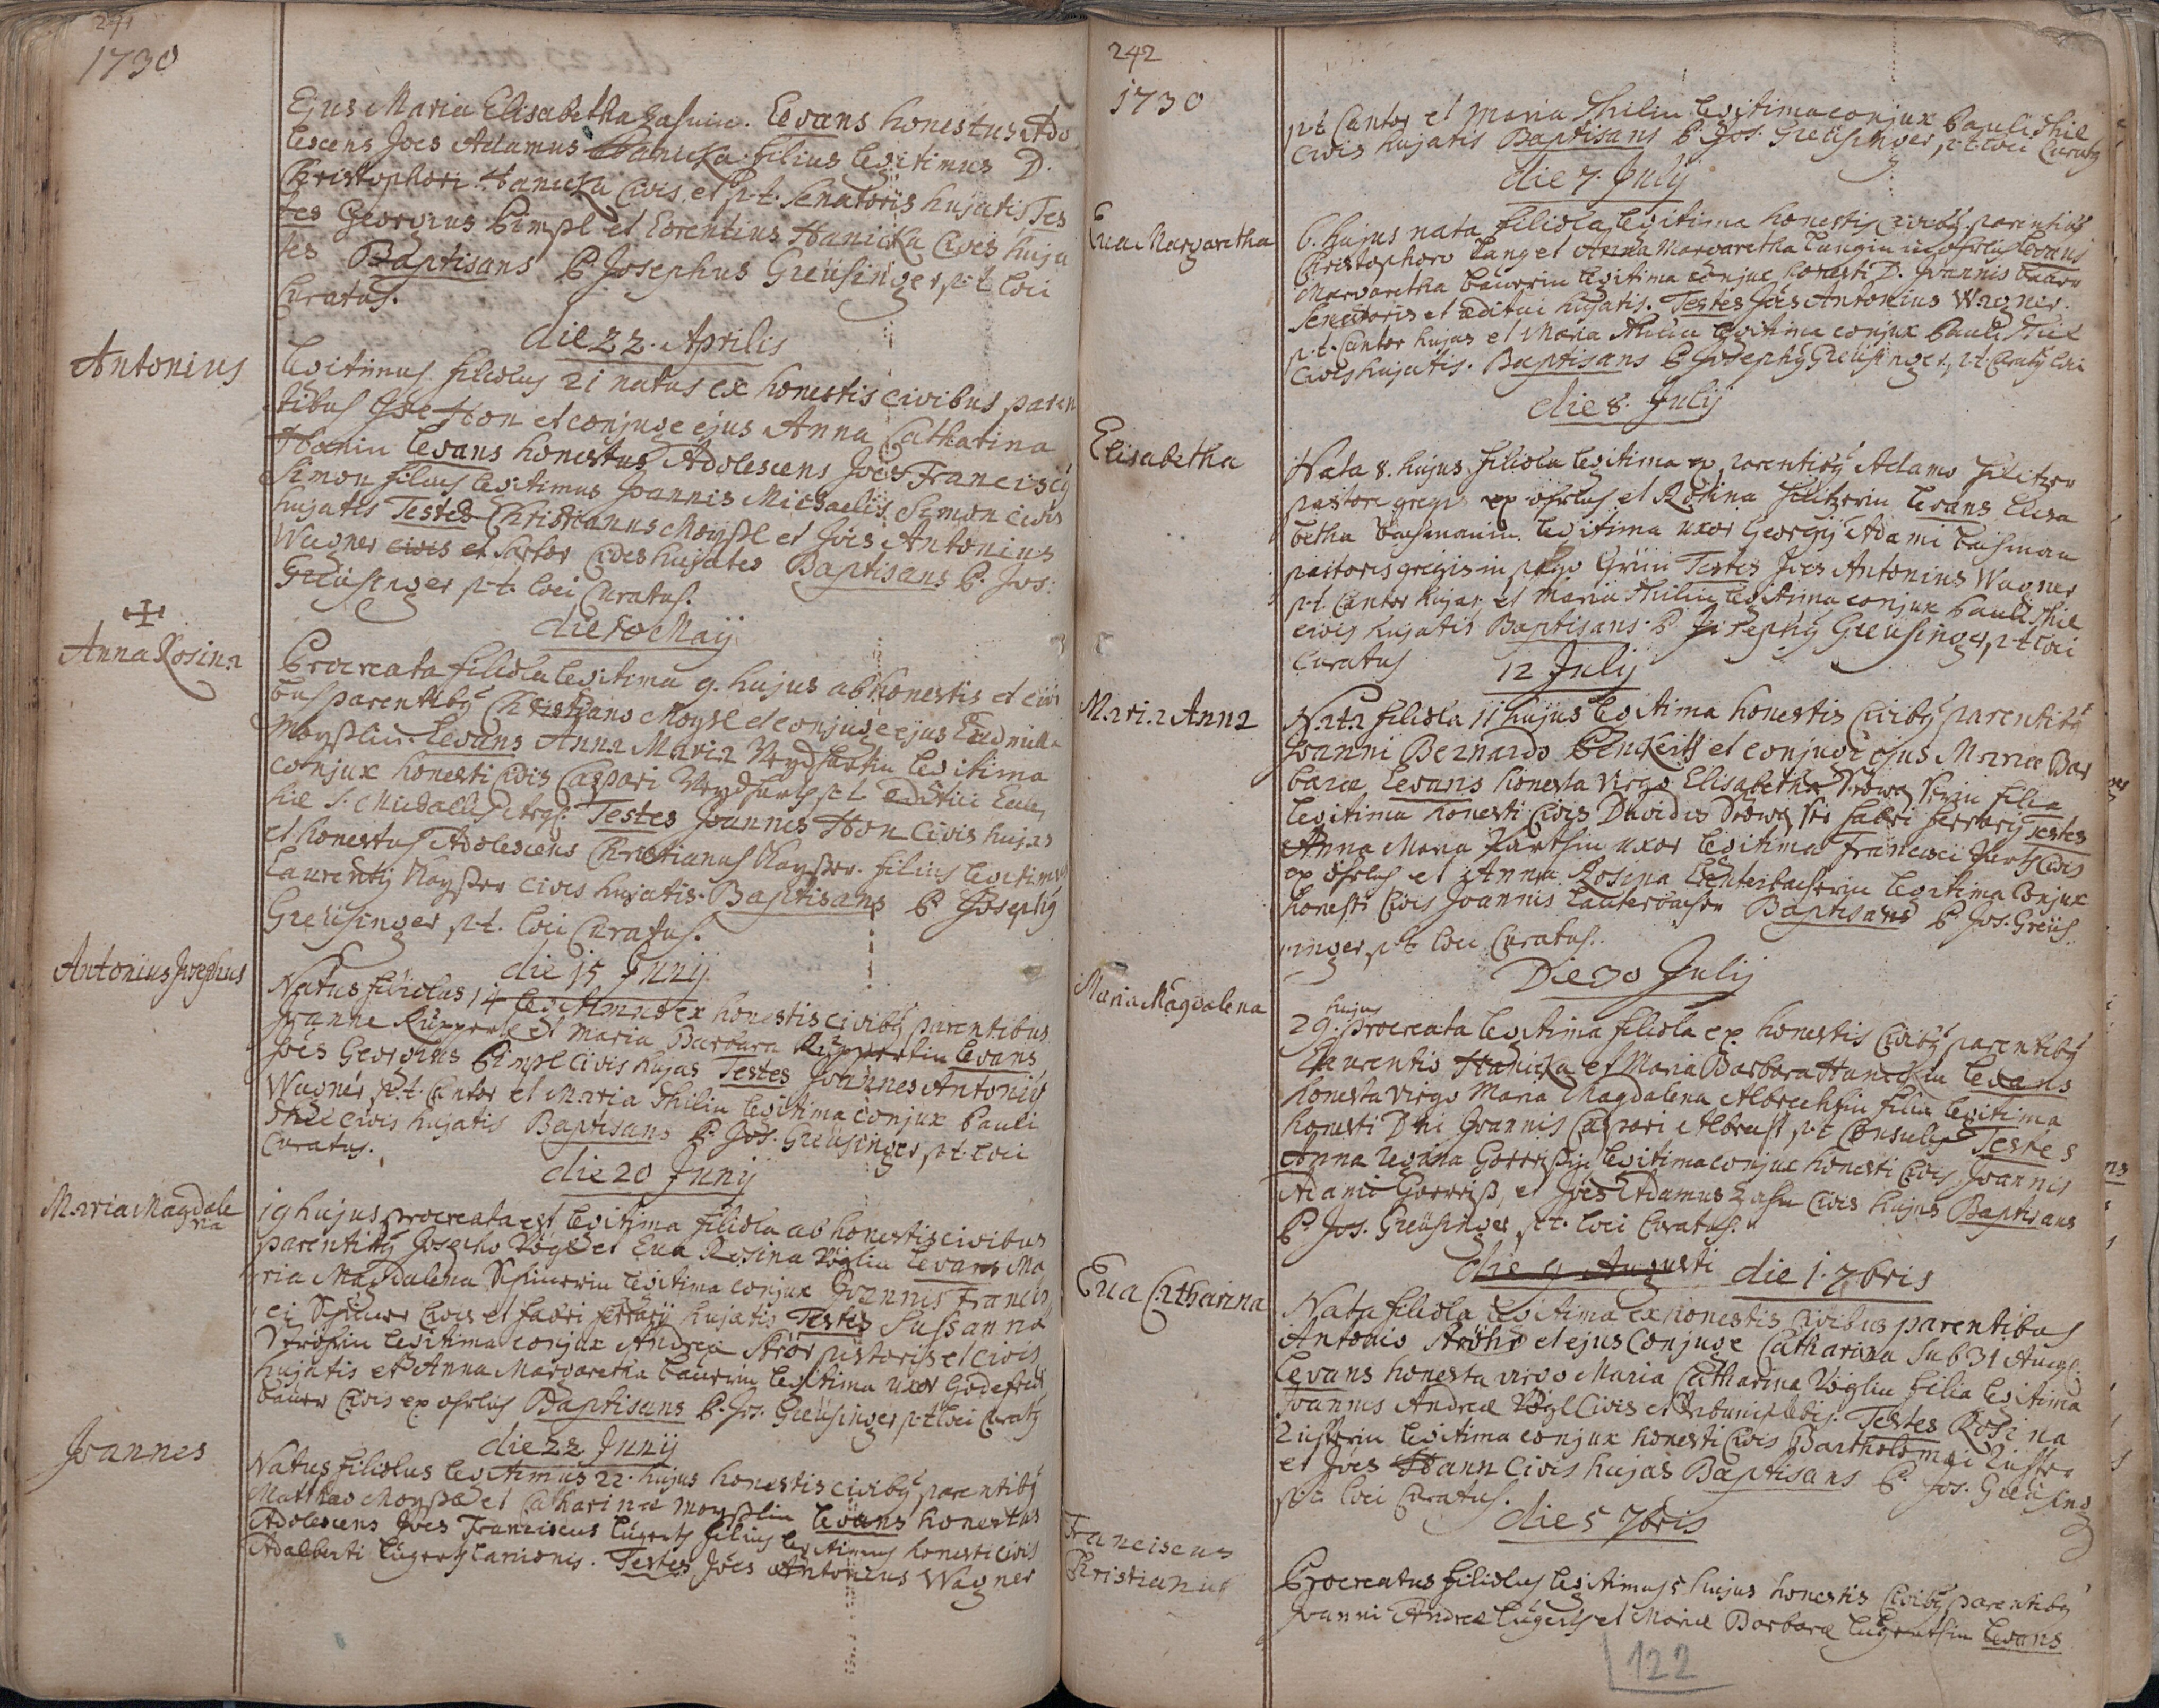 241
1730
Ejus Maria Elisabetha Levans honestus Ado
lescens Joes Adamus Hanicka filius legitimus D.
Christophori Hanicka Civis et p.t. Senatoris hujatis Tes
tes Georgius Pimpl et Lorentius Hanicka Cives huja
tes Baptisans P. Josephus Greüsinger p.t. loci
Curatus.
die 22. Aprilis
Antonius
legitimus filiolus 21 natus ex honestis civibus paren
tibus Joe Hon et conjuge ejus Anna Catharina
Honin Levans honestus Adolescens Joes Franciscq
Simon filius legitimus Joannis Michaelis Simon civis
hujatis Testes Christianus Moyßl et Jois Antonius
Wagner civis et Sartor Cives hujates Baptisans P. Jos:
Greüsinger p.t. loci Curatus.
die 10 Maij
Anna Rosina
Procreata filiola legitima 9. hujus ab honestis et civi
bus parentibq Christiano Moysl et conjuge ejus Ludmilla
Moyßlin. Levans Anna Maria legitima
conjux honesti Civis Caspari p.t. Eccle
siae S. Michaelis Testes Joannes Hon Civis hujas
et honestus Adolescens Christianus Kayßer filius legitimus
Laurentij Kayßer civis hujatis. Baptisans P. Josephq
Greüsinger p.t. loci Curatus.
die 15 Junij
Antonius Josephus
Natus filiolus 14 legitimus ex honestis civibq parentibus
Joanne Ruppert et Maria Barbara Ruppertin Levans
Joes Georgius Pimpl Civis hujas Testes Joannes Antoniq
Wagner p.t. Cantor et Maria Thilin legitima conjux Pauli
Thil civis hujatis Baptisans P. Jos. Greüsinger p.t. loci
Curatus.
die 20 Junij
Maria Magdale
na
19 hujus procreata est legitima filiola ab honestis civibus
parentibq Josepho Vögl et Eva Rosina Vöglin Levans Ma
ria Magdalena legitima conjux Joannis Francis
ci Civis et fabri ferrarij hujatis Testes Sussanna
legitima conjux Andreæ pistoris et civis
hujatis et Anna Margaretha Baurin legitima uxor Godefridi
Baurr Civis ex Baptisans P. Jos. Greüsinger p.t. loci Curatq
die 22 Junij
Joannes
Natus filiolus legitimus 22. hujus honestis civibq parentibq
Mathæo Moyßl et Catharinæ Moyßlin Levans honestus
Adolescens Joes Franciscus Lugerts filius legitimus honesti civis
Adalberti Lugerts Lanionis. Testes Joes Antonius Wagner
242
1730
p.t. Cantor et Maria Thilin legitima conjux Pauli Thil
civis hujatis Baptisans P. Jos. Greüsinger, p.t. loci Curatq
die 7. July
Eua Margaretha
6. hujus nata filiola legitima honestis civibq parentibq
Christophoro Lang et Anna Margaretha Langin Levans
Margaretha Baurrin legitima conjux honesti D. Joannis Baurr
Senatoris et æditui hujatis. Testes Joes Antonius Wagner.
p.t. Cantor hujas et Maria Thilin legitima conjux Pauli Thil
Civis hujatis. Baptisans P. Josephq Greüsinger, p.t. Curatq loci
die 8. July
Elisabetha
Nata 8. hujus filiola legitima ex parentibq Adamo
pastore gregis ex et Rosina Levans Elisa
betha legitima uxor Georgij Adami
pastoris gregis in pago Grün Testes Joes Antonius Wagner
p.t. Cantor hujas et Maria Thilin legitima conjux Pauli Thil
civis hujatis Baptisans. P. Josephq Greüsinger, p.t. loci
Curatus
12 July
Maria Anna
Nata filiola 11 hujus legitima honestis Civibq parentibq
Joanni Bernardo et conjuge ejus Mariæ Bar
baræ Levans honesta virgo Elisabetha filia
legitima honesti Civis Davidis fabri ferrarij Testes
Anna Maria uxor legitima Francisci Civis
ex et Anna Rosina Lauterbacherin legitima Conjux
honesti Civis Joannis Lauterbacher Baptisans P. Jos. Greüs
inger p.t. loci Curatus.
Die 30 July
Maria Magdalena
29. hujus procreata legitima filiola ex honestis Civibq parentibq
Laurentio Hanicka et Maria Barbara Hanickin Levans
honesta virgo Maria Magdalena Albrechtin filia legitima
honesti Dni Joannis Caspari Albrecht p.t. Consulis Testes
Anna Regina Gorrißin legitima conjux honesti Civis Joannis
Adami Gorriß, et Joes Adamus Civis hujas Baptisans
P. Jos. Greüsinger p.t. loci Curatus.
die 9 Augusti die 1. 7bris
Eua Catharina
Nata filiola legitima ex honestis Civibus parentibus
Antonio et ejus Conjuge Catharina sub 31 Aug:
Levans honesta virgo Maria Catharina Vöglin filia legitima
Joannis Andreæ Vögl Civis et Tribuni plebis. Testes Rosina
legitima conjux honesti Civis Bartholomæi
et Joes Hann Civis hujas Baptisans P. Jos. Greüsing
p.t. loci Curatus.
die 5 7bris
Franciscus
Christianus
Procreatus filiolus legitimus 5 hujus honestis Civibq parentibq
Joanni Andreæ Lugerts et Mariæ Barbaræ Levans
122